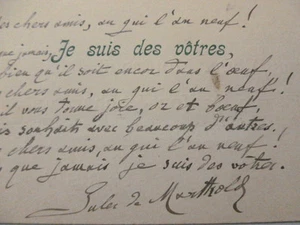 chers amis, au gui l'an neuf !
que jamais, Je suis des vôtres,
bien qu'il soit encor dans l'œuf,
chers amis, au gui l'an neuf !
il vous donne joie, or et bœuf,
souhaits avec beaucoup d'autres.
chers amis, au gui l'an neuf !
que jamais je suis des vôtres.
Jules de Marthold